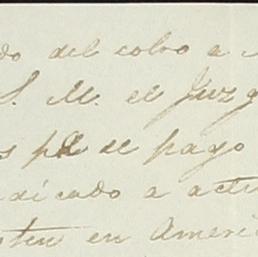 do del cobro a
S. M. el Juzg
s pa de pago
dicado a actu
sten en Améri